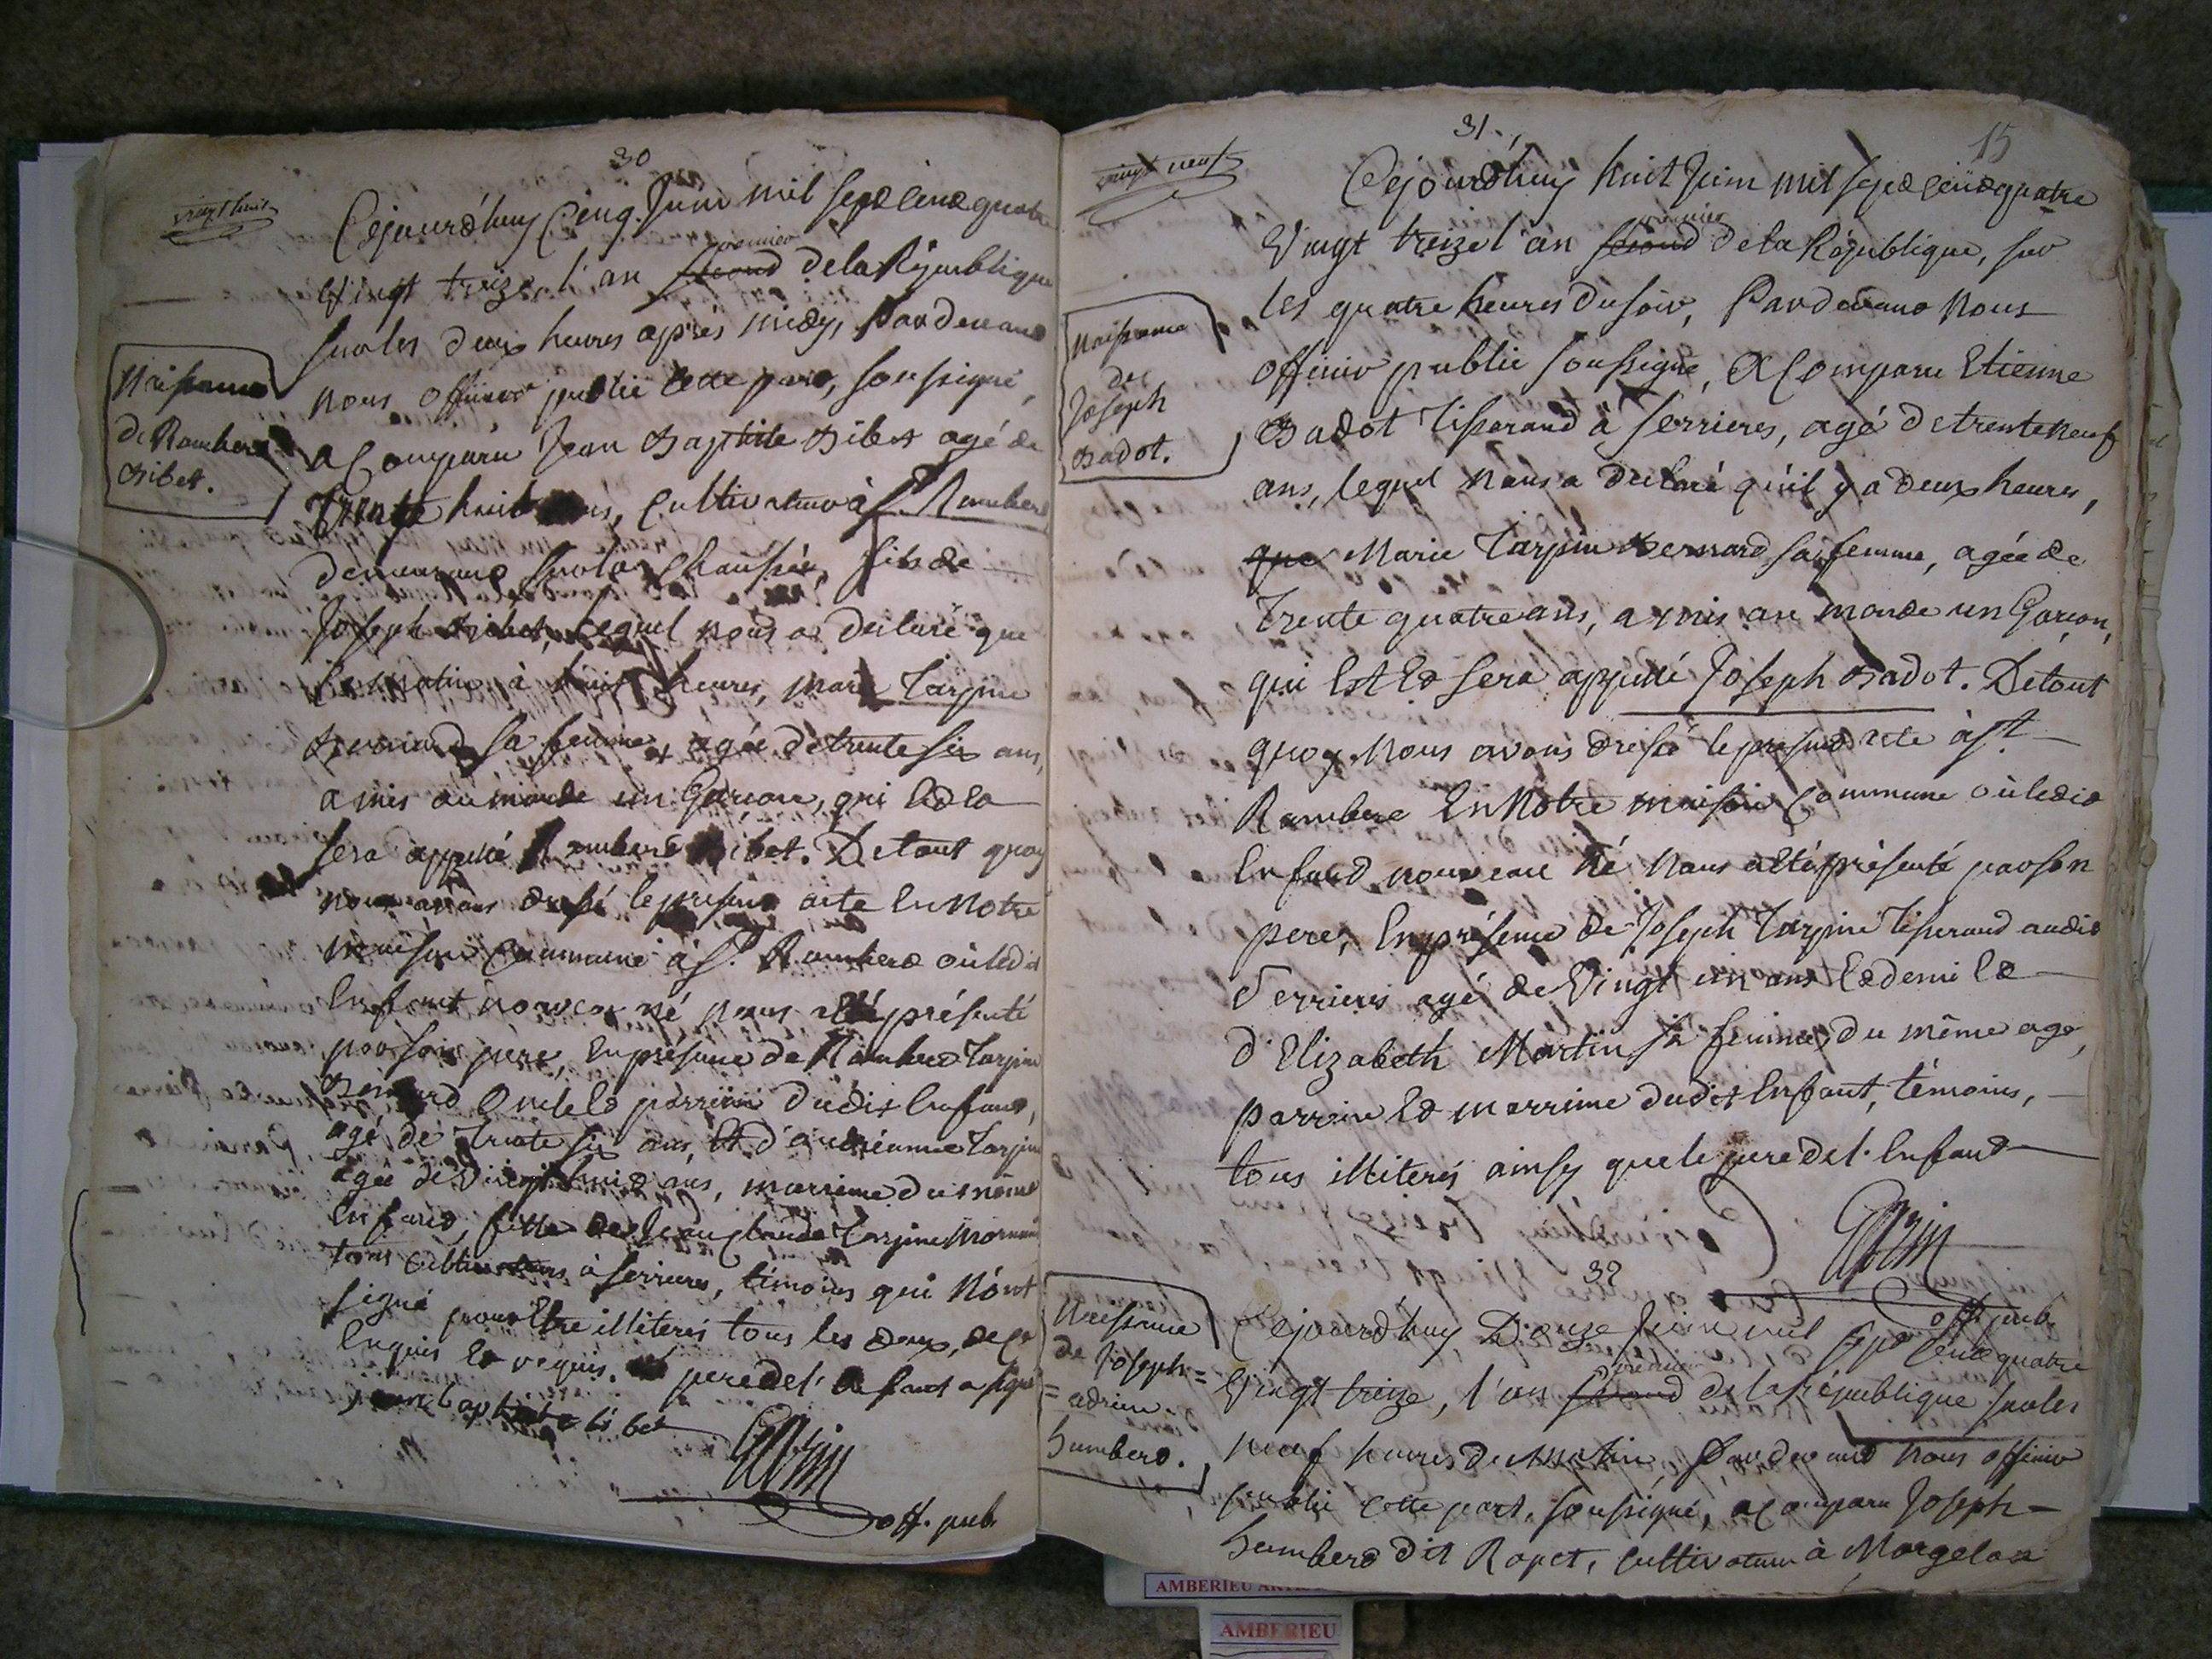 30
vingt huit
Cejourd'huy Cinq Juin mil sept cent quatre
Vingt treize l'an second premier de la République
sur les deux heures après midy, Pardevant
nous officier public cette part, soussigné,
a Comparu Jean Baptiste Bibet agé de
Trente huit ans, Cultivateur à St. Rambert
demeurant sur la Chaussée, fils de
Joseph Bibet, lequel nous a déclaré que
ce matin à huit heures, Marie Tarpin
Bernard sa femme, agée de trente six ans,
a mis au monde un Garçon, qui Est Et
sera appellé Rambert Bibet. De tout quoy
nous avons dressé le présent acte En Notre
maison Commune à St. Rambert où ledit
Enfant nouveau né nous a Eté présenté
par son pere, En présence de Rambert Tarpin
Bernard Oncle Et parrain dudit Enfant,
agé de Trente six ans, Et d'andréanne Tarpin
agée de Vingt huit ans, marraine du même
Enfant, fille de Jean Claude Tarpin
tous cultivateurs à Serrieres, témoins qui N'ont
signé pour Etre illiterés tous les deux, de ce
Enquis Et requis. Le pere de l'Enfant a signé
jean baptiste bibet
off. pub.
Naissance
de Rambert
Bibet.
31.
15
vingt neuf
Cejourd'huy huit Juin mil sept cent quatre
Vingt treize l'an second premier de la République, sur
les quatre heures du soir, Pardevant Nous
officier public soussigné, a Comparu Etienne
Badot Tisserand à Serrieres, agé de trente neuf
ans, lequel Nous a déclaré qu'il y a deux heures,
que Marie Tarpin Bernard sa femme, agée de
Trente quatre ans, a mis au monde un Garçon,
qui Est Et sera appellé Joseph Badot. De tout
quoy Nous avons dressé le présent acte à St.
Rambert En Notre maison Commune où ledit
Enfant nouveau Né Nous a Eté présenté par son
pere, En présence de Joseph Tarpin Tisserand audit
Serrieres agé de Vingt un ans Et demi Et
d'Elizabeth Martin sa femme, du même age,
parrain Et marraine dudit Enfant, témoins,
tous illiterés ainsy que le pere de l'Enfant
off. pub.
Naissance
de
Joseph
Badot.
32
Cejourd'huy Douze Juin mil sept Cent quatre
Vingt treize, l'an second premier de la république sur les
neuf heures du Matin, Pardevant nous officier
public cette part, soussigné, a Comparu Joseph
humbert dit Rapet, Cultivateur à Morgelas
Naissance
de Joseph =
= adrien
humbert.
AMBERIEU
AMBERIEU